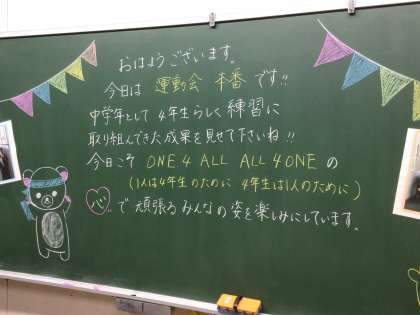 おはようございます。
今日は 運動会 本番 です!!
中学年として 4年生らしく 練習に
取り組んできた成果を見せて下さいね!!
今日こそ ONE 4 ALL ALL 4 ONE の
(1人は4年生のために 4年生は1人のために)
心で 頑張る みんなの 姿を楽しみにしています。